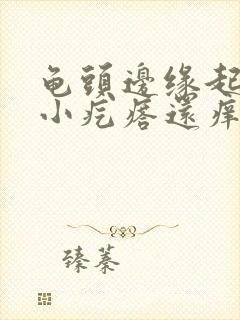 龟头邊缘起
小疙瘩還痒
臻蓁